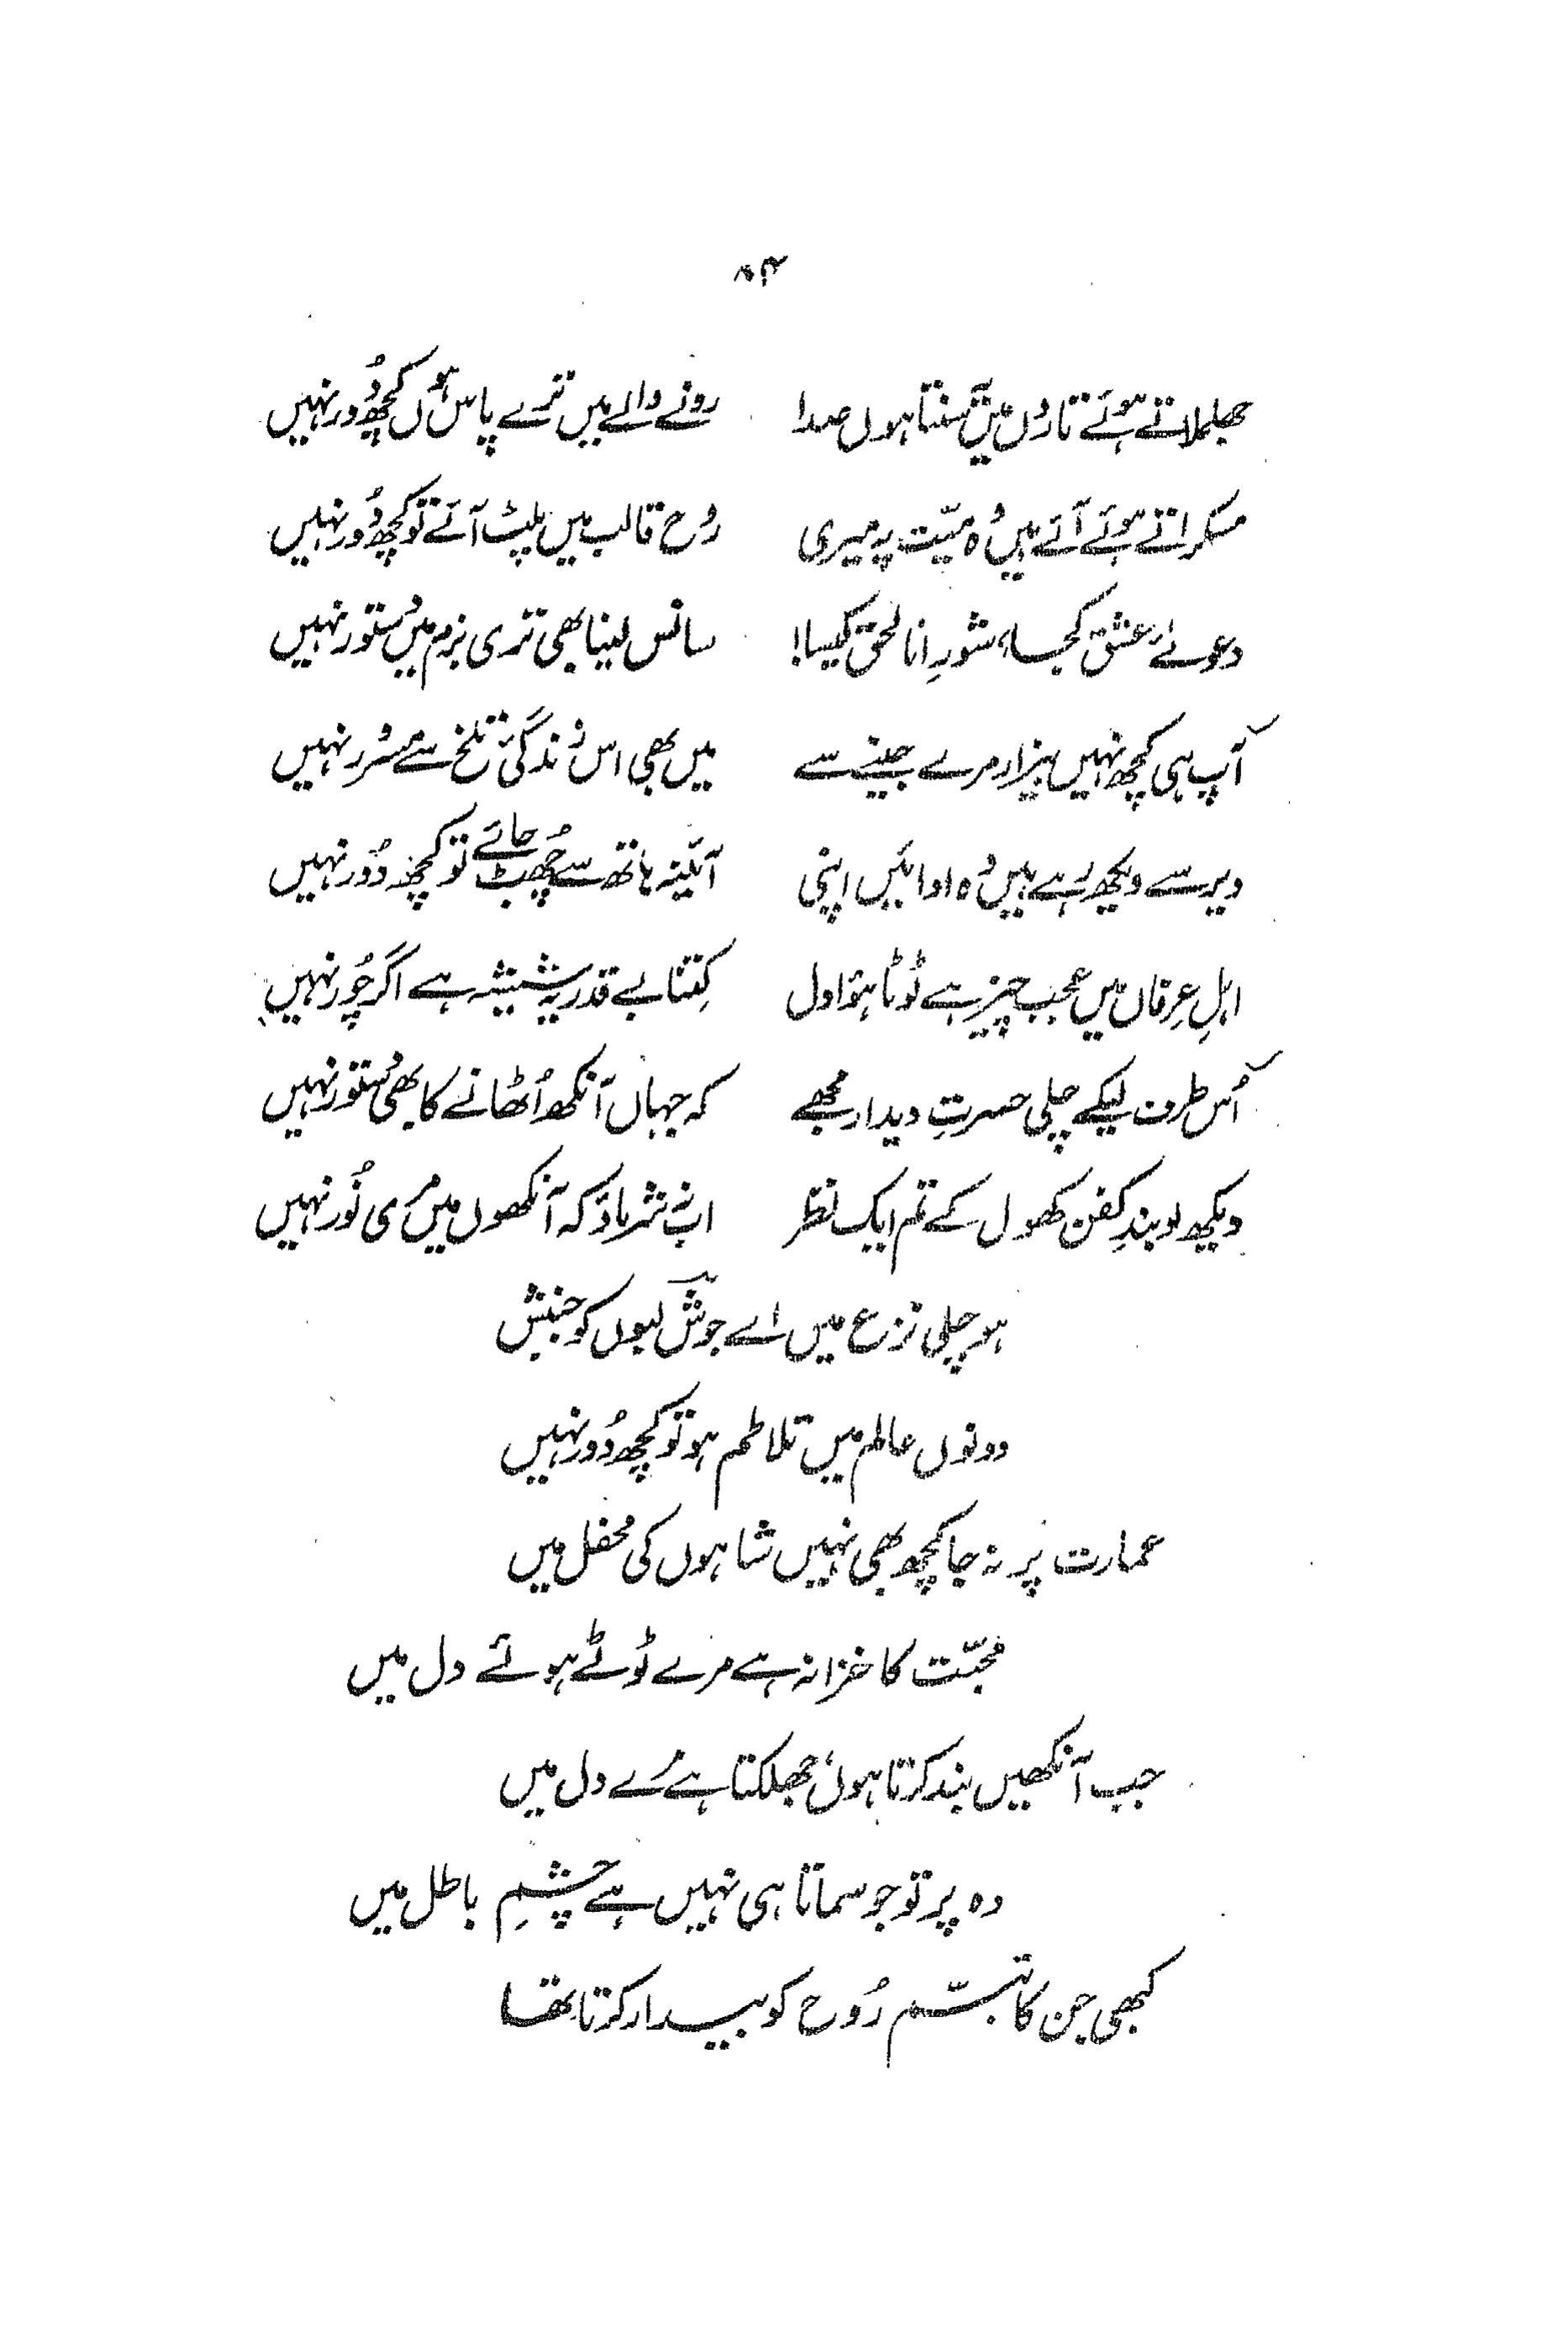 جھلملاتے ہوئے تاروں میں سُنتا ہوں صدا رونے والے میں ترے پاس ہوں کچھ دُور نہیں
مسکراتے ہوئے آئے ہیں وُہ میّت پہ میری رُوح قالب میں پلٹ آئے تو کچھ دُور نہیں
دعوئے عشق کُجا، شورِ انا الحق کیسا! سانس لینا بھی تری بزم میں دستور نہیں
آپ ہی کچھ نہیں بیزار مرے جینے سے میں بھی اس زندگیٔ تلخ سے مسرور نہیں
دیر سے دیکھ رہے ہیں وُہ ادائیں اپنی آئینہ ہاتھ سے چُھٹ جائے تو کچھ دُور نہیں
اہلِ عِرفاں میں عجب چیز ہے ٹوٹا ہؤا دل کِتنا بے قدر یہ شیشہ ہے اگر چُور نہیں
اُس طرف لیکے چلی حسرتِ دیدار مجھے کہ جہاں آنکھ اُٹھانے کا بھی دستور نہیں
دیکھ لو بندِ کفن کھول کے تم ایک نظر اب نہ شرماؤ کہ آنکھوں میں مری نُور نہیں
ہو چلی نزع میں اے جوشؔ لبوں کو جنبش
دونوں عالم میں تلاطم ہو تو کچھ دُور نہیں
عمارت پر نہ جا کچھ بھی نہیں شاہوں کی محفل میں
محبّت کا خزانہ ہے مرے ٹوٹے ہوئے دل میں
جب آنکھیں بند کرتا ہوں، جھلکتا ہے مرے دل میں
وہ پرتو جو سماتا ہی نہیں ہے چشمِ باطل میں
کبھی جن کا تبسّم رُوح کو بیدار کرتا تھا